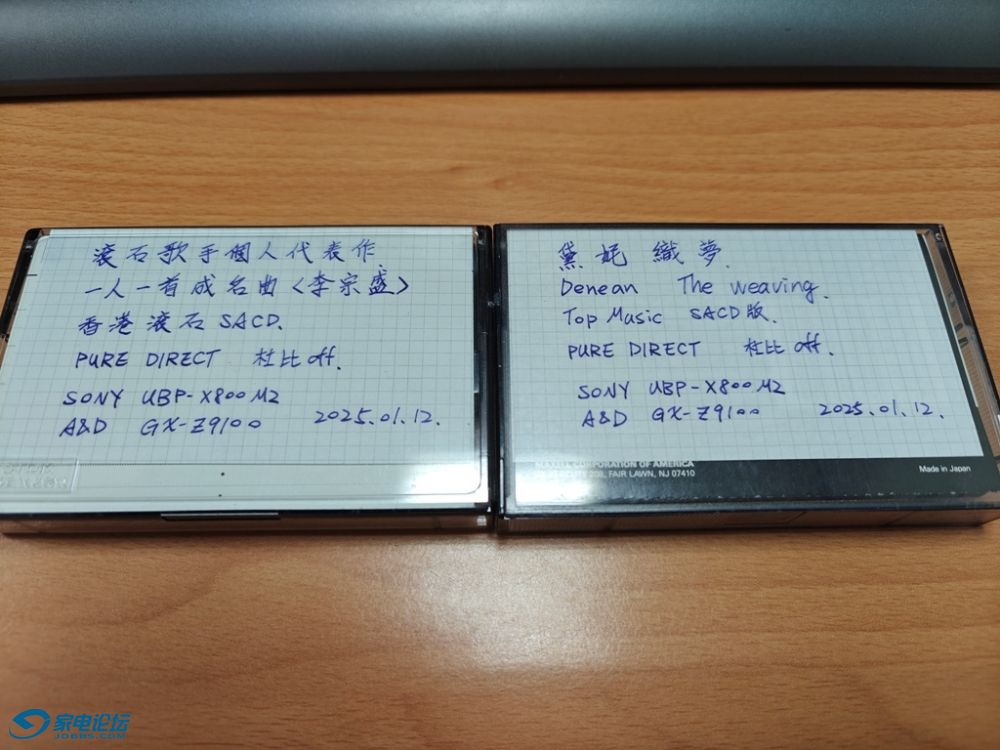 滚石歌手個人代表作
一人一首成名曲〈李宗盛〉
香港滚石 SACD.
PURE DIRECT 杜比 off.
SONY UBP-X800M2
A&D GX-Z9100 2025.01.12.
黛妮 織夢.
Denean The weaving.
Top Music SACD版.
PURE DIRECT 杜比 off.
SONY UBP-X800M2
A&D GX-Z9100 2025.01.12.
CORPORATION OF AMERICA
FAIR LAWN, NJ 07410
Made in Japan
家电论坛
JDBBS.COM